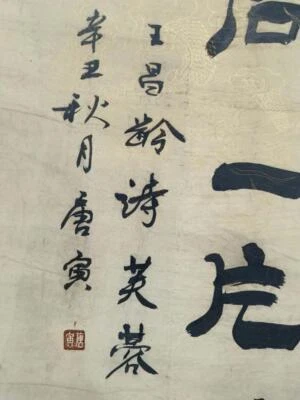 一片
王昌齡詩芙蓉
辛丑秋月唐寅
唐寅